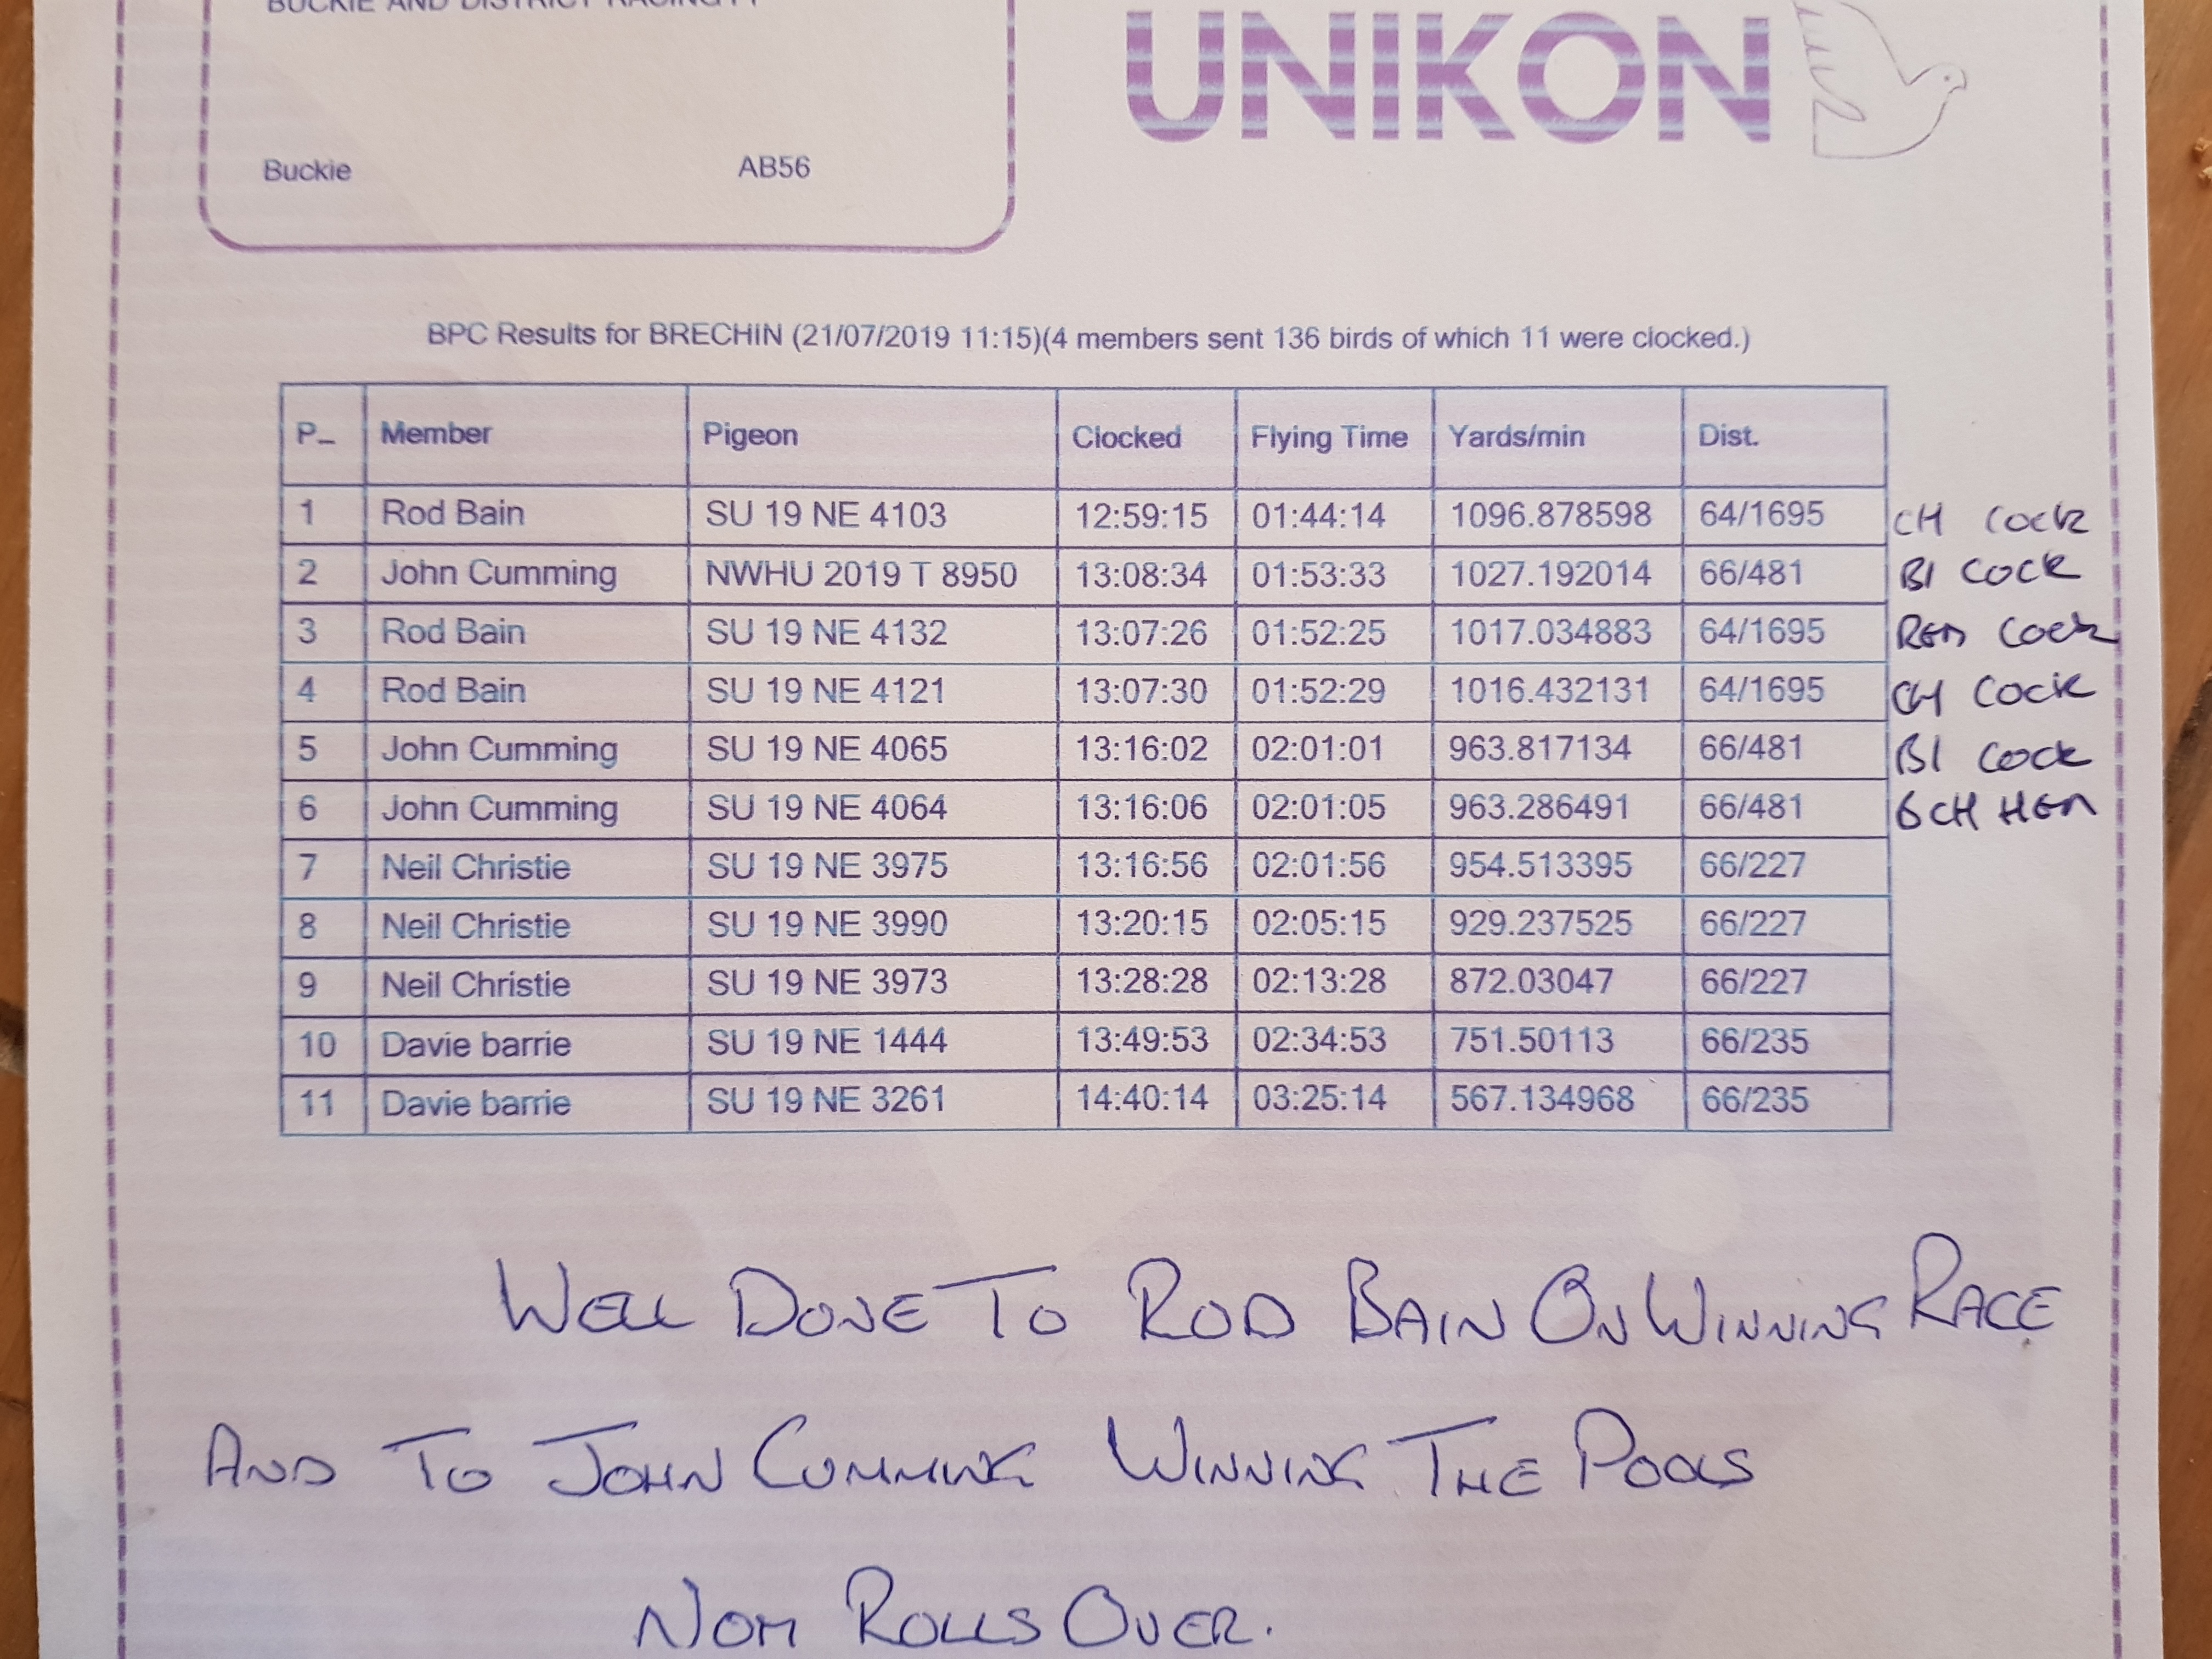 BUCKIE AND DISTRICT RACING
UNIKON
Buckie AB56
BPC Results for BRECHIN (21/07/2019 11:15)(4 members sent 136 birds of which 11 were clocked.)
P_ Member Pigeon Clocked Flying Time Yards/min Dist.
1 Rod Bain SU 19 NE 4103 12:59:15 01:44:14 1096.878598 64/1695 CH COCK
2 John Cumming NWHU 2019 T 8950 13:08:34 01:53:33 1027.192014 66/481 Bl COCK
3 Rod Bain SU 19 NE 4132 13:07:26 01:52:25 1017.034883 64/1695 RED COCK
4 Rod Bain SU 19 NE 4121 13:07:30 01:52:29 1016.432131 64/1695 CH COCK
5 John Cumming SU 19 NE 4065 13:16:02 02:01:01 963.817134 66/481 Bl COCK
6 John Cumming SU 19 NE 4064 13:16:06 02:01:05 963.286491 66/481 CH HEN
7 Neil Christie SU 19 NE 3975 13:16:56 02:01:56 954.513395 66/227
8 Neil Christie SU 19 NE 3990 13:20:15 02:05:15 929.237525 66/227
9 Neil Christie SU 19 NE 3973 13:28:28 02:13:28 872.03047 66/227
10 Davie barrie SU 19 NE 1444 13:49:53 02:34:53 751.50113 66/235
11 Davie barrie SU 19 NE 3261 14:40:14 03:25:14 567.134968 66/235
WELL DONE TO ROD BAIN ON WINNING RACE
AND TO JOHN CUMMING WINNING THE POOLS
NOM ROLLS OVER.